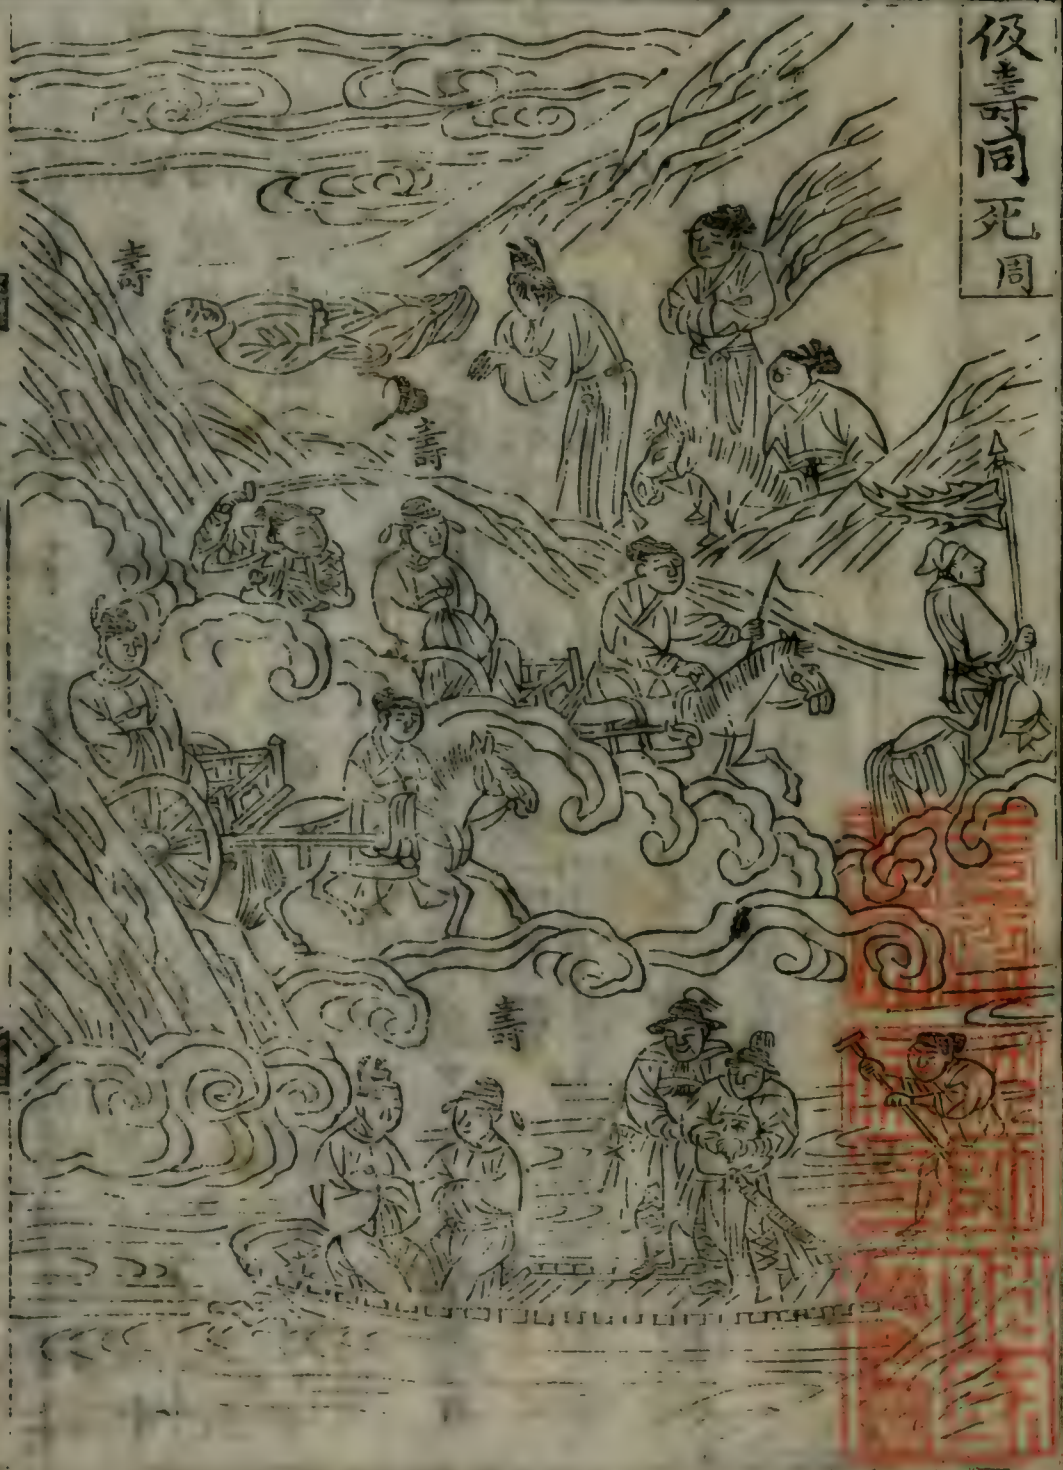 伋壽同死周
壽
壽
壽